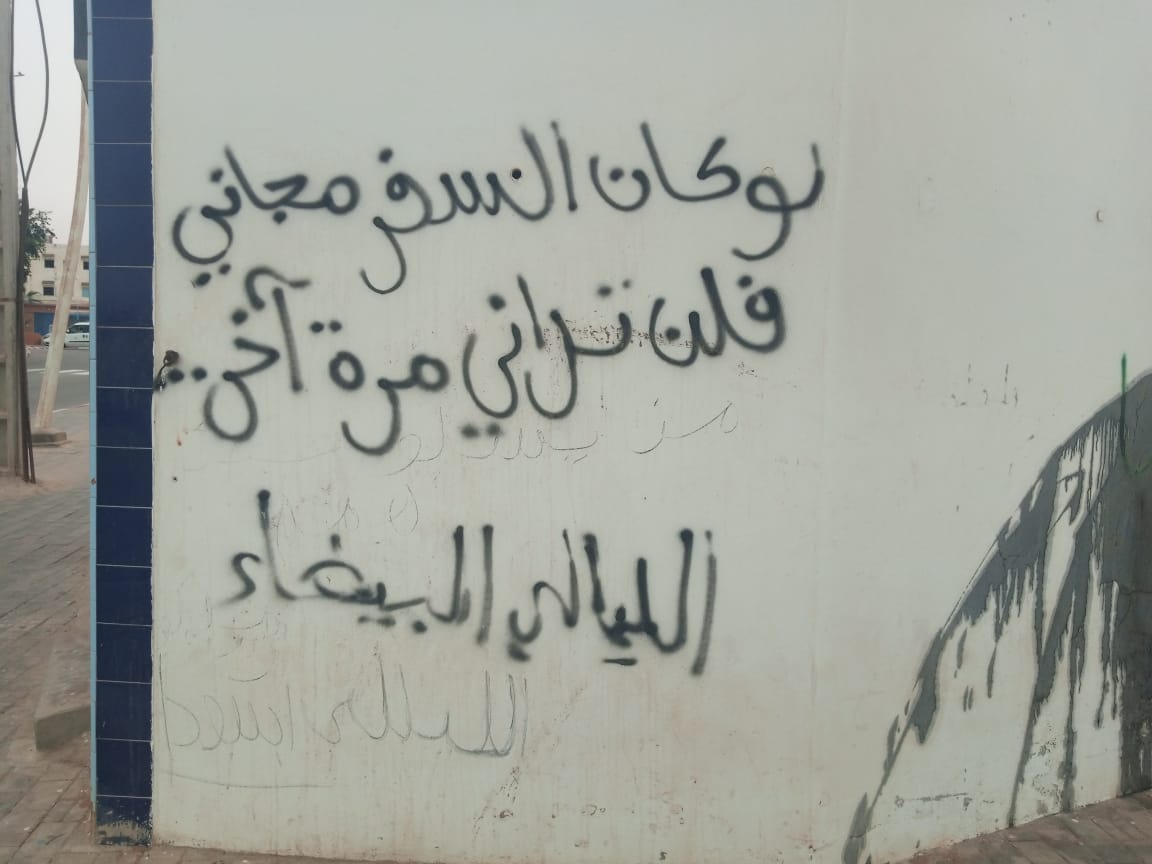 لو كان السفر مجاني
فلن تراني مرة آخر..
الليالي البيضاء